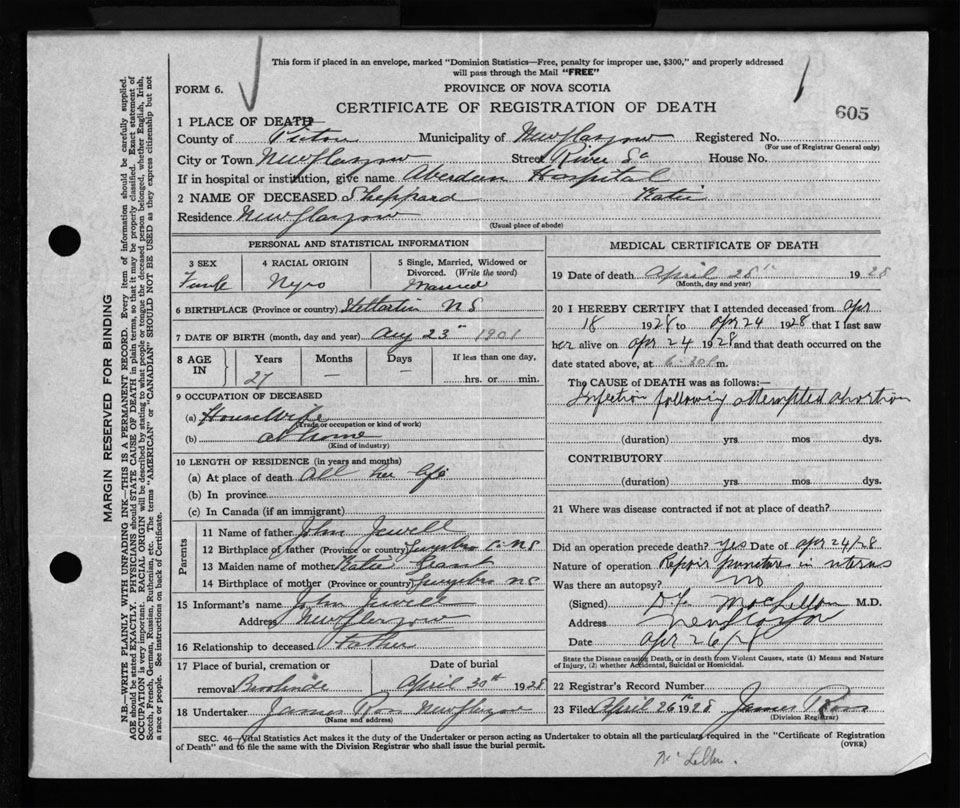 This form if placed in an envelope, marked "Dominion Statistics—Free, penalty for improper use, $300," and properly addressed
will pass through the Mail "FREE"
FORM 6.
PROVINCE OF NOVA SCOTIA
605
CERTIFICATE OF REGISTRATION OF DEATH
1 PLACE OF DEATH
County of Pictou Municipality of New Glasgow Registered No.
(For use of Registrar General only)
City or Town New Glasgow Street River St House No.
If in hospital or institution, give name Aberdeen Hospital
2 NAME OF DECEASED Sheppard Katie
Residence New Glasgow
(Usual place of abode)
PERSONAL AND STATISTICAL INFORMATION
3 SEX 4 RACIAL ORIGIN 5 Single, Married, Widowed or
Divorced. (Write the word)
Female Negro Married
6 BIRTHPLACE (Province or country) N S
7 DATE OF BIRTH (month, day and year) Aug 23rd 1901
8 AGE IN Years Months Days If less than one day,
27 — — hrs. or min.
9 OCCUPATION OF DECEASED
(a) Housewife
(Trade or occupation or kind of work)
(b) at home
(Kind of industry)
10 LENGTH OF RESIDENCE (in years and months)
(a) At place of death All her life
(b) In province
(c) In Canada (if an immigrant)
Parents
11 Name of father John Jewell
12 Birthplace of father (Province or country) Guysboro C. NS
13 Maiden name of mother Katie Grant
14 Birthplace of mother (Province or country) Guysboro NS
15 Informant's name John Jewell
Address New Glasgow
16 Relationship to deceased Father
17 Place of burial, cremation or Date of burial
removal Brookside April 30th 1928
18 Undertaker James Ross New Glasgow
(Name and address)
MEDICAL CERTIFICATE OF DEATH
19 Date of death April 28th 1928
(Month, day and year)
20 I HEREBY CERTIFY that I attended deceased from Apr
18 1928 to Apr 24 1928 that I last saw
her alive on Apr 24 1928 and that death occurred on the
date stated above, at 6.30 m.
The CAUSE of DEATH was as follows:—
Infection following attempted abortion
(duration) yrs. mos dys.
CONTRIBUTORY
(duration) yrs mos. dys.
21 Where was disease contracted if not at place of death?
Did an operation precede death? yes Date of apr 24/28
Nature of operation Repair punctures in uterus
Was there an autopsy? no
(Signed) MacLellan M.D.
Address New Glasgow
Date apr 26/28
State the Disease causing Death, or in death from Violent Causes, state (1) Means and Nature
of Injury, (2) whether Accidental, Suicidal or Homicidal.
22 Registrar's Record Number
23 Filed April 26th 1928 James Ross
(Division Registrar)
SEC. 46—Vital Statistics Act makes it the duty of the Undertaker or person acting as Undertaker to obtain all the particulars required in the "Certificate of Registration
of Death" and to file the same with the Division Registrar who shall issue the burial permit.
(OVER)
McLellan.
MARGIN RESERVED FOR BINDING
N.B.—WRITE PLAINLY WITH UNFADING INK—THIS IS A PERMANENT RECORD. Every item of information should be carefully supplied.
AGE should be stated EXACTLY. PHYSICIANS should STATE CAUSE OF DEATH in plain terms, so that it may be properly classified. Exact statement of
OCCUPATION is very important. RACIAL ORIGIN will be described by stating to what people or tongue the deceased person belonged, whether English, Irish,
Scotch, French, German, Russian, Ruthenian, etc. The terms "AMERICAN" or "CANADIAN" SHOULD NOT BE USED as they express citizenship but not
a race or people. See instructions on back of Certificate.